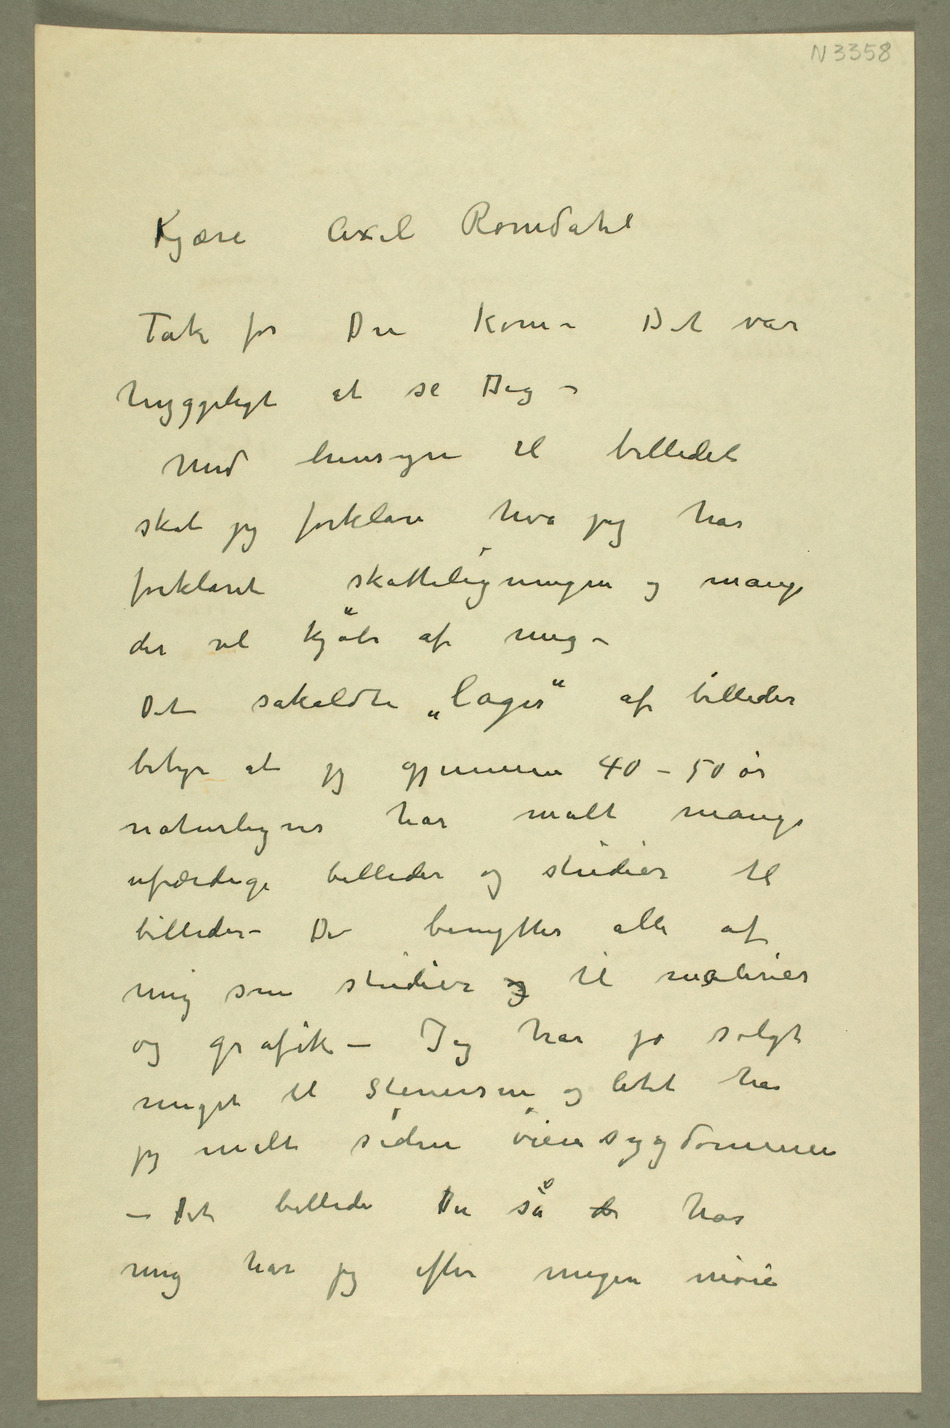 N 3358
Kjære Axel Romdahl
Tak for Du kom – Det var
hyggeligt at se Dig –
Med hensyn til billedet
skal jeg forklare hva jeg har
forklaret skatteligningen og mange
der vil kjöbe af mig –
Det såkaldte „lager“ af billeder
betyr at jeg gjennem 40 – 50 år
naturligvis har malt mange
ufærdige billeder og studier til
billeder – De benyttes alle af
mig som studier og til malerier
og grafik – Jeg har jo solgt
meget til Stenersen og litet har
jeg malt siden öiensygdommen
– Det billede Du så hos
mig har jeg efter megen möie